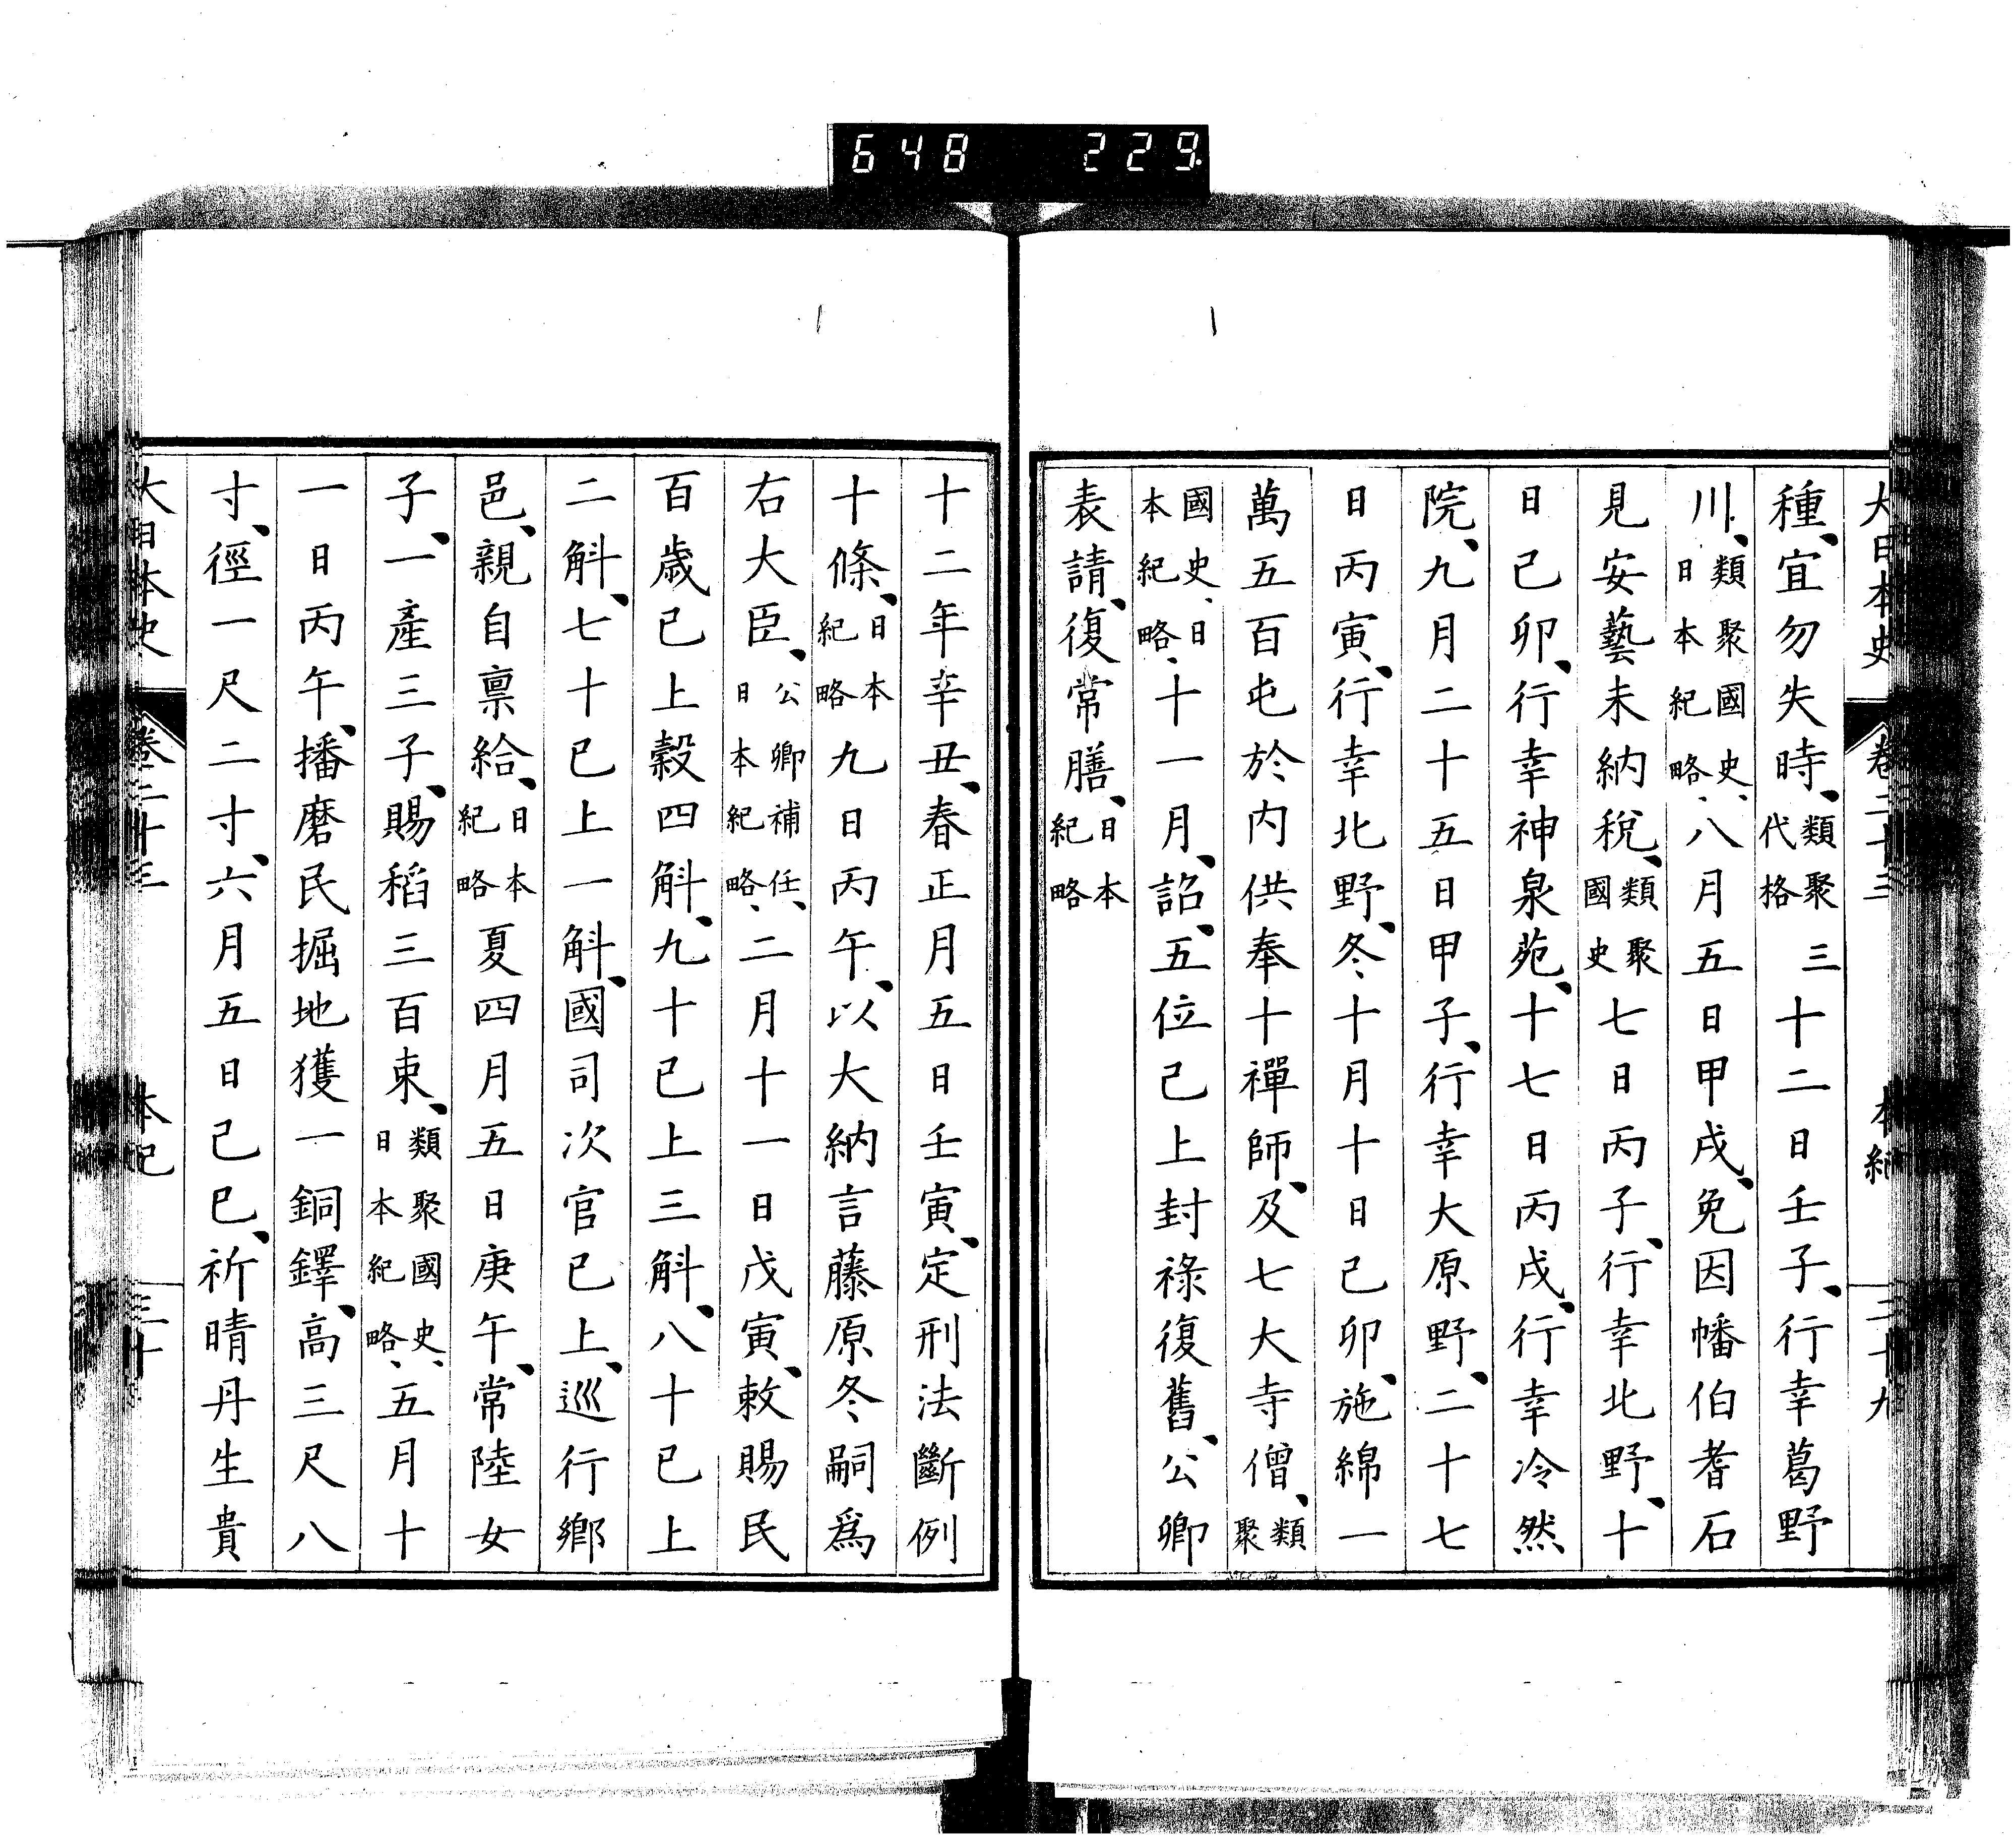 648 229
大日本史 卷二十三 本紀 二十九
種、宜勿失時、類聚代格 三十二日壬子、行幸葛野
川、類聚國史、日本紀略、八月五日甲戌、免因幡伯耆石
見安藝未納稅、類聚國史七日丙子、行幸北野、十
日己卯、行幸神泉苑、十七日丙戌、行幸冷然
院、九月二十五日甲子、行幸大原野、二十七
日丙寅、行幸北野、冬十月十日己卯、施綿一
萬五百屯於内供奉十禪師、及七大寺僧、類聚
國史、日本紀略、十一月、詔、五位已上封祿復舊、公卿
表請、復常膳、日本紀略
十二年辛丑、春正月五日壬寅、定刑法斷例
十條、日本紀略九日丙午、以大納言藤原冬嗣爲
右大臣、公卿補任、日本紀略、二月十一日戊寅、敕賜民
百歳已上穀四斛、九十已上三斛、八十已上
二斛、七十已上一斛、國司次官已上、巡行鄉
邑、親自稟給、日本紀略夏四月五日庚午、常陸女
子、一產三子、賜稻三百束、類聚國史、日本紀略、五月十
一日丙午、播磨民掘地獲一銅鐸、高三尺八
寸、徑一尺二寸、六月五日己巳、祈晴丹生貴
大日本史 卷二十三 本紀 三十